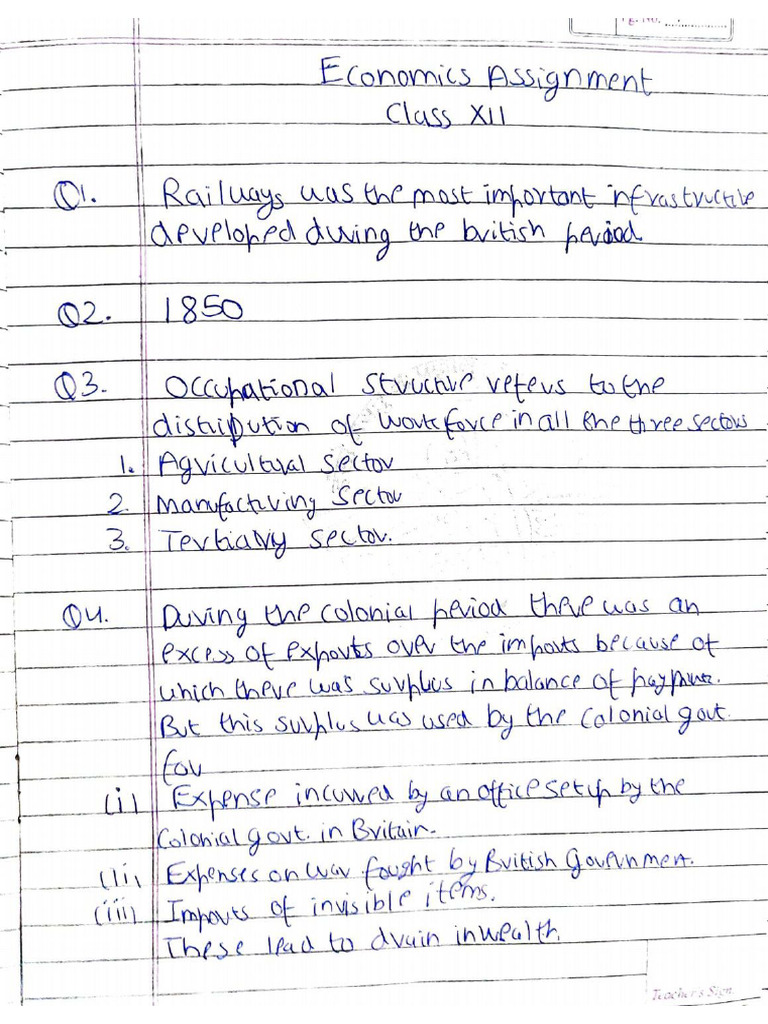 Pg. No. ..................
Economics Assignment
Class XII
Q1. Railways was the most important infrastructure
developed during the british period
Q2. 1850
Q3. Occupational structure refers to the
distribution of workforce in all the three sectors
1. Agricultural sector
2. Manufacturing Sector
3. Tertiary sector.
Q4. During the colonial period there was an
excess of exports over the imports because of
which there was surplus in balance of payment.
But this surplus was used by the colonial govt.
for
(i) Expense incurred by an office setup by the
Colonial govt. in Britain.
(ii) Expenses on war fought by British Government.
(iii) Imports of invisible items.
These lead to drain in wealth.
Teacher's Sign.